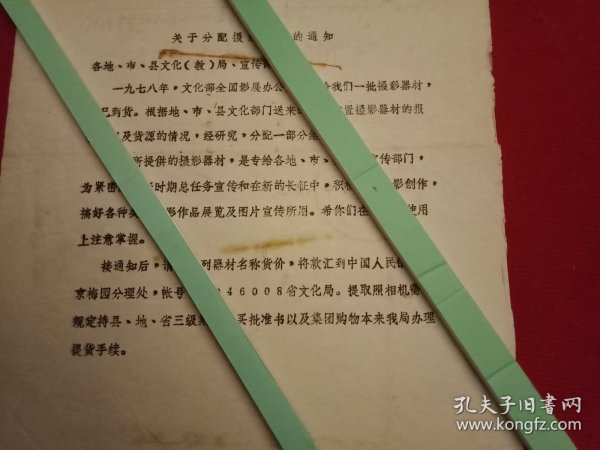 关于分配摄 的通知
各地、市、县文化(教)局、宣传
一九七八年，文化部全国影展办公 给我们一批摄影器材，
已到货。根据地、市、县文化部门送来 置摄影器材的报
及货源的情况，经研究，分配一部分给
所提供的摄影器材，是专给各地、市、 宣传部门，
为紧密 时期总任务宣传和在新的长征中，积 影创作，
搞好各种 影作品展览及图片宣传所用。希你们在 使用
上注意掌握。
接通知后，请 列器材名称货价，将款汇到中国人民银
京梅园分理处，帐号 146008省文化局。提取照相机需
规定持县、地、省三级 买批准书以及集团购物本来我局办理
提货手续。
孔夫子旧书网
www.kongfz.com